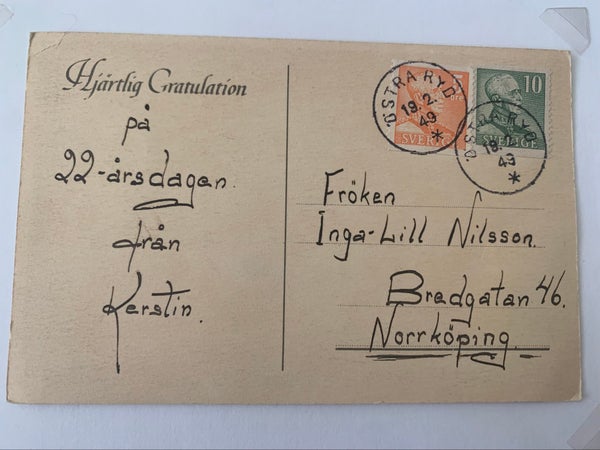 Hjärtlig Gratulation
på
22-årsdagen.
från
Kerstin.
5
ÖRE
SVERIGE
ÖSTRA RYD
19.2.
49
*
10
SVERIGE
ÖSTRA RYD
19.2.
49
*
Fröken
Inga-Lill Nilsson.
Bredgatan 46.
Norrköping.